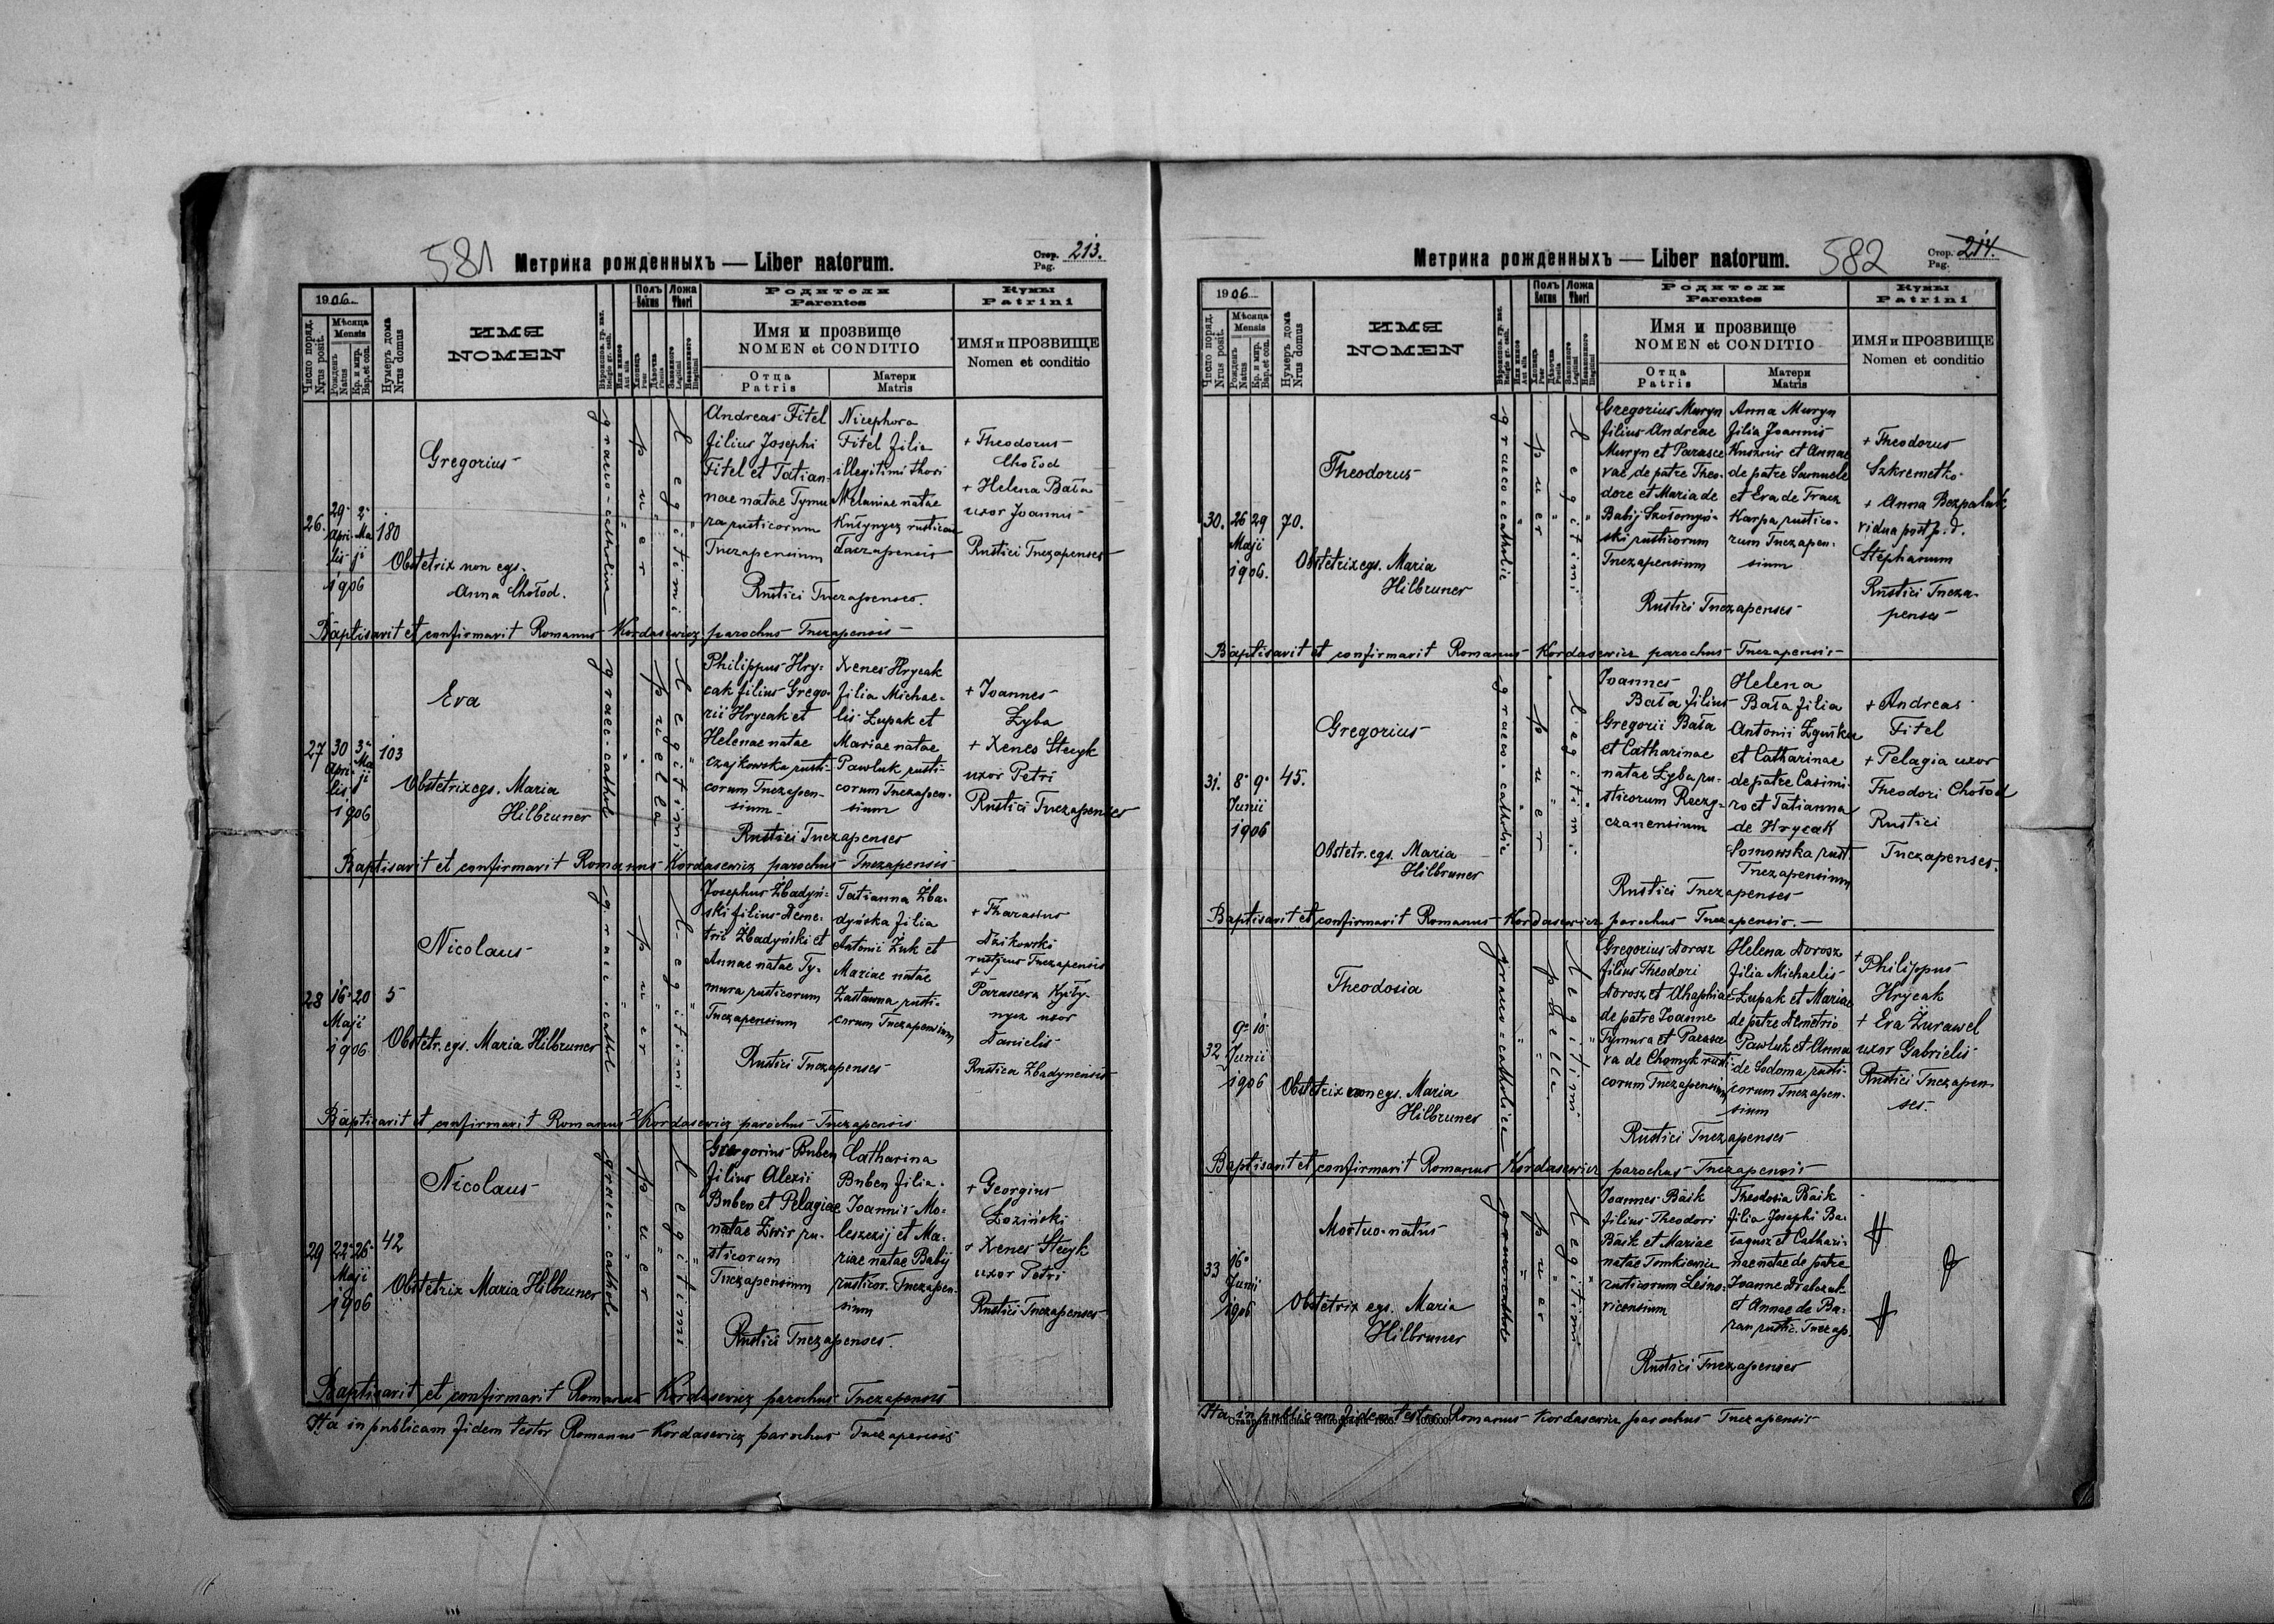 581
Метрика рожденныхъ — Liber natorum.
Стор. 213.
Pag.
1906
Число поряд.
Nrus posit.
Мѣсяца
Mensis
Рожденъ
Natus
Кр. и мир.
Bap. et con.
Нумеръ дома
Nrus domus
ИМЯ
NOMEN
Полъ
Sexus
Ложа
Thori
Родители
Parentes
Имя и прозвище
NOMEN et CONDITIO
Отца
Patris
Матери
Matris
Кумы
Patrini
ИМЯ и ПРОЗВИЩЕ
Nomen et conditio
26. 29 Aprilis 2 Maji 1906
180
Gregorius
Obstetrix non egs.
Anna Chołod.
graeco-catholica
puer
legitimi
Andreas Fitel
filius Josephi
Fitel et Tatian-
nae natae Tymu
ra rusticorum
Tnczapensium
Nicephora
Fitel filia
illegitimi thori
Melaniae natae
Tnczapensis
Rustici Tnczapenses.
+ Theodorus
Chołod
+ Helena Bała
uxor Joannis
Rustici Tnczapenses
Baptisavit et confirmavit Romanus Kordasewicz parochus Tnczapensis
27 30 Aprilis 3 Maji 1906
103
Eva
Obstetrix egs. Maria
Hilbruner
graec-cathol
puella
legitimi
Philippus Hry-
cak filius Grego-
rii Hrycak et
Helenae natae
Czajkowska rusti-
corum Tnczapen-
sium
Xenes Hrycak
filia Michae-
lis Łupak et
Mariae natae
Pawluk rusti-
corum Tnczapen-
sium
Rustici Tnczapenses
+ Joannes
Zyba
+ Xenes Stecyk
uxor Petri
Rustici Tnczapenses
Baptisavit et confirmavit Romanus Kordasewicz parochus Tnczapensis
28 16 20 Maji 1906
5
Nicolaus
Obstetr. egs. Maria Hilbruner
graec. cathol
puer
legitimi
Josephus Żbadyń-
ski filius Deme-
trii Żbadyński et
Annae natae Ty-
mura rusticorum
Tnczapensium
Tatianna Żba-
dyńska filia
Antonii Żuk et
Mariae natae
Zastawna rusti-
corum Tnczapensium
Rustici Tnczapenses
+ Tharasius
Dzikowski
rusticus Tnczapensis
+
Parascera
uxor
Danielis
Rustica Zbadynensis
Baptisavit et confirmavit Romanus Kordasewicz parochus Tnczapensis
29 22 26 Maji 1906
42
Nicolaus
Obstetrix Maria Hilbruner
graec-cathol
puer
legitimi
Gregorius Buben
filius Alexii
Buben et Pelagiae
natae Żwir ru-
sticorum
Tnczapensium
Catharina
Buben filia
Joannis Mo-
leszczij et Ma-
riae natae Babij
rusticor. Tnczapen-
sium
Rustici Tnczapenses.
+ Georgius
Łoziński
+ Xenes Stecyk
uxor Petri
Rustici Tnczapenses
Baptisavit et confirmavit Romanus Kordasewicz parochus Tnczapensis
Ita in publicam fidem testor Romanus Kordasewicz parochus Tnczapensis
Метрика рожденныхъ — Liber natorum.
582
Стор. 214.
Pag.
1906
Число поряд.
Nrus posit.
Мѣсяца
Mensis
Рожденъ
Natus
Кр. и мир.
Bap. et con.
Нумеръ дома
Nrus domus
ИМЯ
NOMEN
Полъ
Sexus
Ложа
Thori
Родители
Parentes
Имя и прозвище
NOMEN et CONDITIO
Отца
Patris
Матери
Matris
Кумы
Patrini
ИМЯ и ПРОЗВИЩЕ
Nomen et conditio
30. 26 29 Maji 1906.
70.
Theodorus
Obstetrix egs. Maria
Hilbruner
graeco catholic
puer
legitimi
Gregorius Muryn
filius Andreae
Muryn et Parasce
vae de patre Theo-
dore et Maria de
Babij
rusticorum
Tnczapensium
Anna Muryn
filia Joannis
Kusznir et Annae
de patre Samuele
et Eva de Tracz
Karpa, rustico-
rum Tnczapen-
sium
Rustici Tnczapenses
+ Theodorus
Szkrometko
+ Anna Bezpaluk
vidua post p. d.
Stephanum
Rustici Tncza-
penses
Baptisavit et confirmavit Romanus Kordasewicz parochus Tnczapensis
31. 8 9 Junii 1906
45.
Gregorius
Obstetr. egs. Maria
Hilbruner
graeco-catholic
puer
legitimi
Joannes
Bała filius
Gregorii Bała
et Catharinae
natae Zyba ru-
sticorum Reczy-
czanensium
Helena
Bała filia
Antonii
et Catharinae
de patre Casimi-
ro et Tatianna
de Hrycak
Somowska rust.
Tnczapensium
Rustici Tnczapenses
+ Andreas
Fitel
+ Pelagia uxor
Theodori Chołod
Rustici
Tnczapenses.
Baptisavit et confirmavit Romanus Kordasewicz parochus Tnczapensis.
32 9 10 Junii 1906
Theodosia
Obstetrix egs. Maria
Hilbruner
graeco-catholicae
puella
legitimi
Gregorius Dorosz
filius Theodori
Dorosz et Ahaphiae
de patre Joanne
Tymura et Parasce
va de Chomyk rusti
corum Tnczapensium
Helena Dorosz
filia Michaelis
Łupak et Mariae
de patre Demetrio
Pawluk et Anna
de Sodoma rusti-
corum Tnczapen-
sium
Rustici Tnczapenses
+ Philippus
Hrycak
+ Eva Żurawel
uxor Gabrielis
Rustici Tnczapen
ses.
Baptisavit et confirmavit Romanus Kordasewicz parochus Tnczapensis
33 16 Junii 1906
Mortuo-natus
Obstetrix egs. Maria
Hilbruner
graeco cathol
puer
legitimi
Joannes Baik
filius Theodori
Baik et Mariae
natae Tomkiewicz
rusticorum Leśno-
vicensium
Theodosia Baik
filia Josephi Ba-
łagusz et Cathari-
nae natae de patre
Joanne
et Annae de Ba-
ran rustic. Tnczap.
Rustici Tnczapenses
Ita in publicam fidem testor Romanus Kordasewicz parochus Tnczapensis